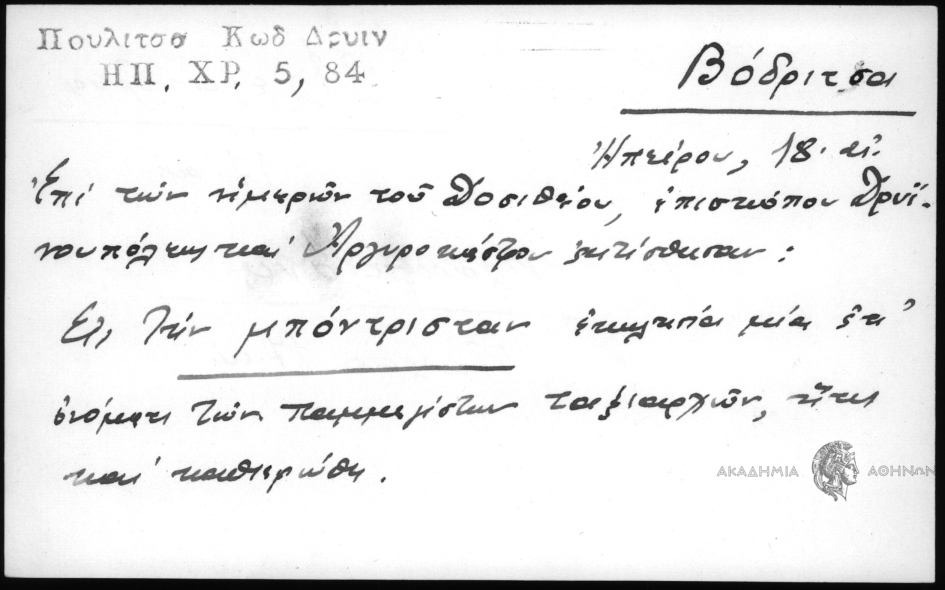 Πουλιτσα Κωδ Δρυιν
ΗΠ. ΧΡ. 5, 84
Βόδριτσα
Ἠπείρου, 18. αἰ.
Ἐπὶ τῶν ἡμερῶν τοῦ Δοσιθέου, ἐπισκόπου Δρυϊ-
νουπόλεως καὶ Ἀργυροκάστρου ἐκτίσθησαν:
Εἰς τὴν μπόντρισταν ἐκκλησία μία ἐπ'
ὀνόματι τῶν παμμεγίστων ταξιαρχῶν, ἥτις
καὶ καθιερώθη.
ΑΚΑΔΗΜΙΑ ΑΘΗΝΩΝ